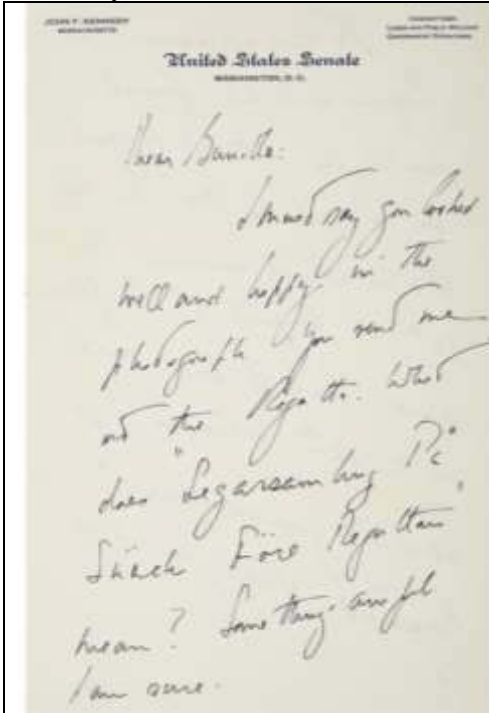 JOHN F. KENNEDY
MASSACHUSETTS
COMMITTEES:
LABOR AND PUBLIC WELFARE
GOVERNMENT OPERATIONS
United States Senate
WASHINGTON, D.C.
Dear Gunilla:
I must say you looked
well and happy in the
photograph you send me
at the Regatta. What
does "Segarsamling Pa
Före Regattan"
mean? Something awful
I am sure.